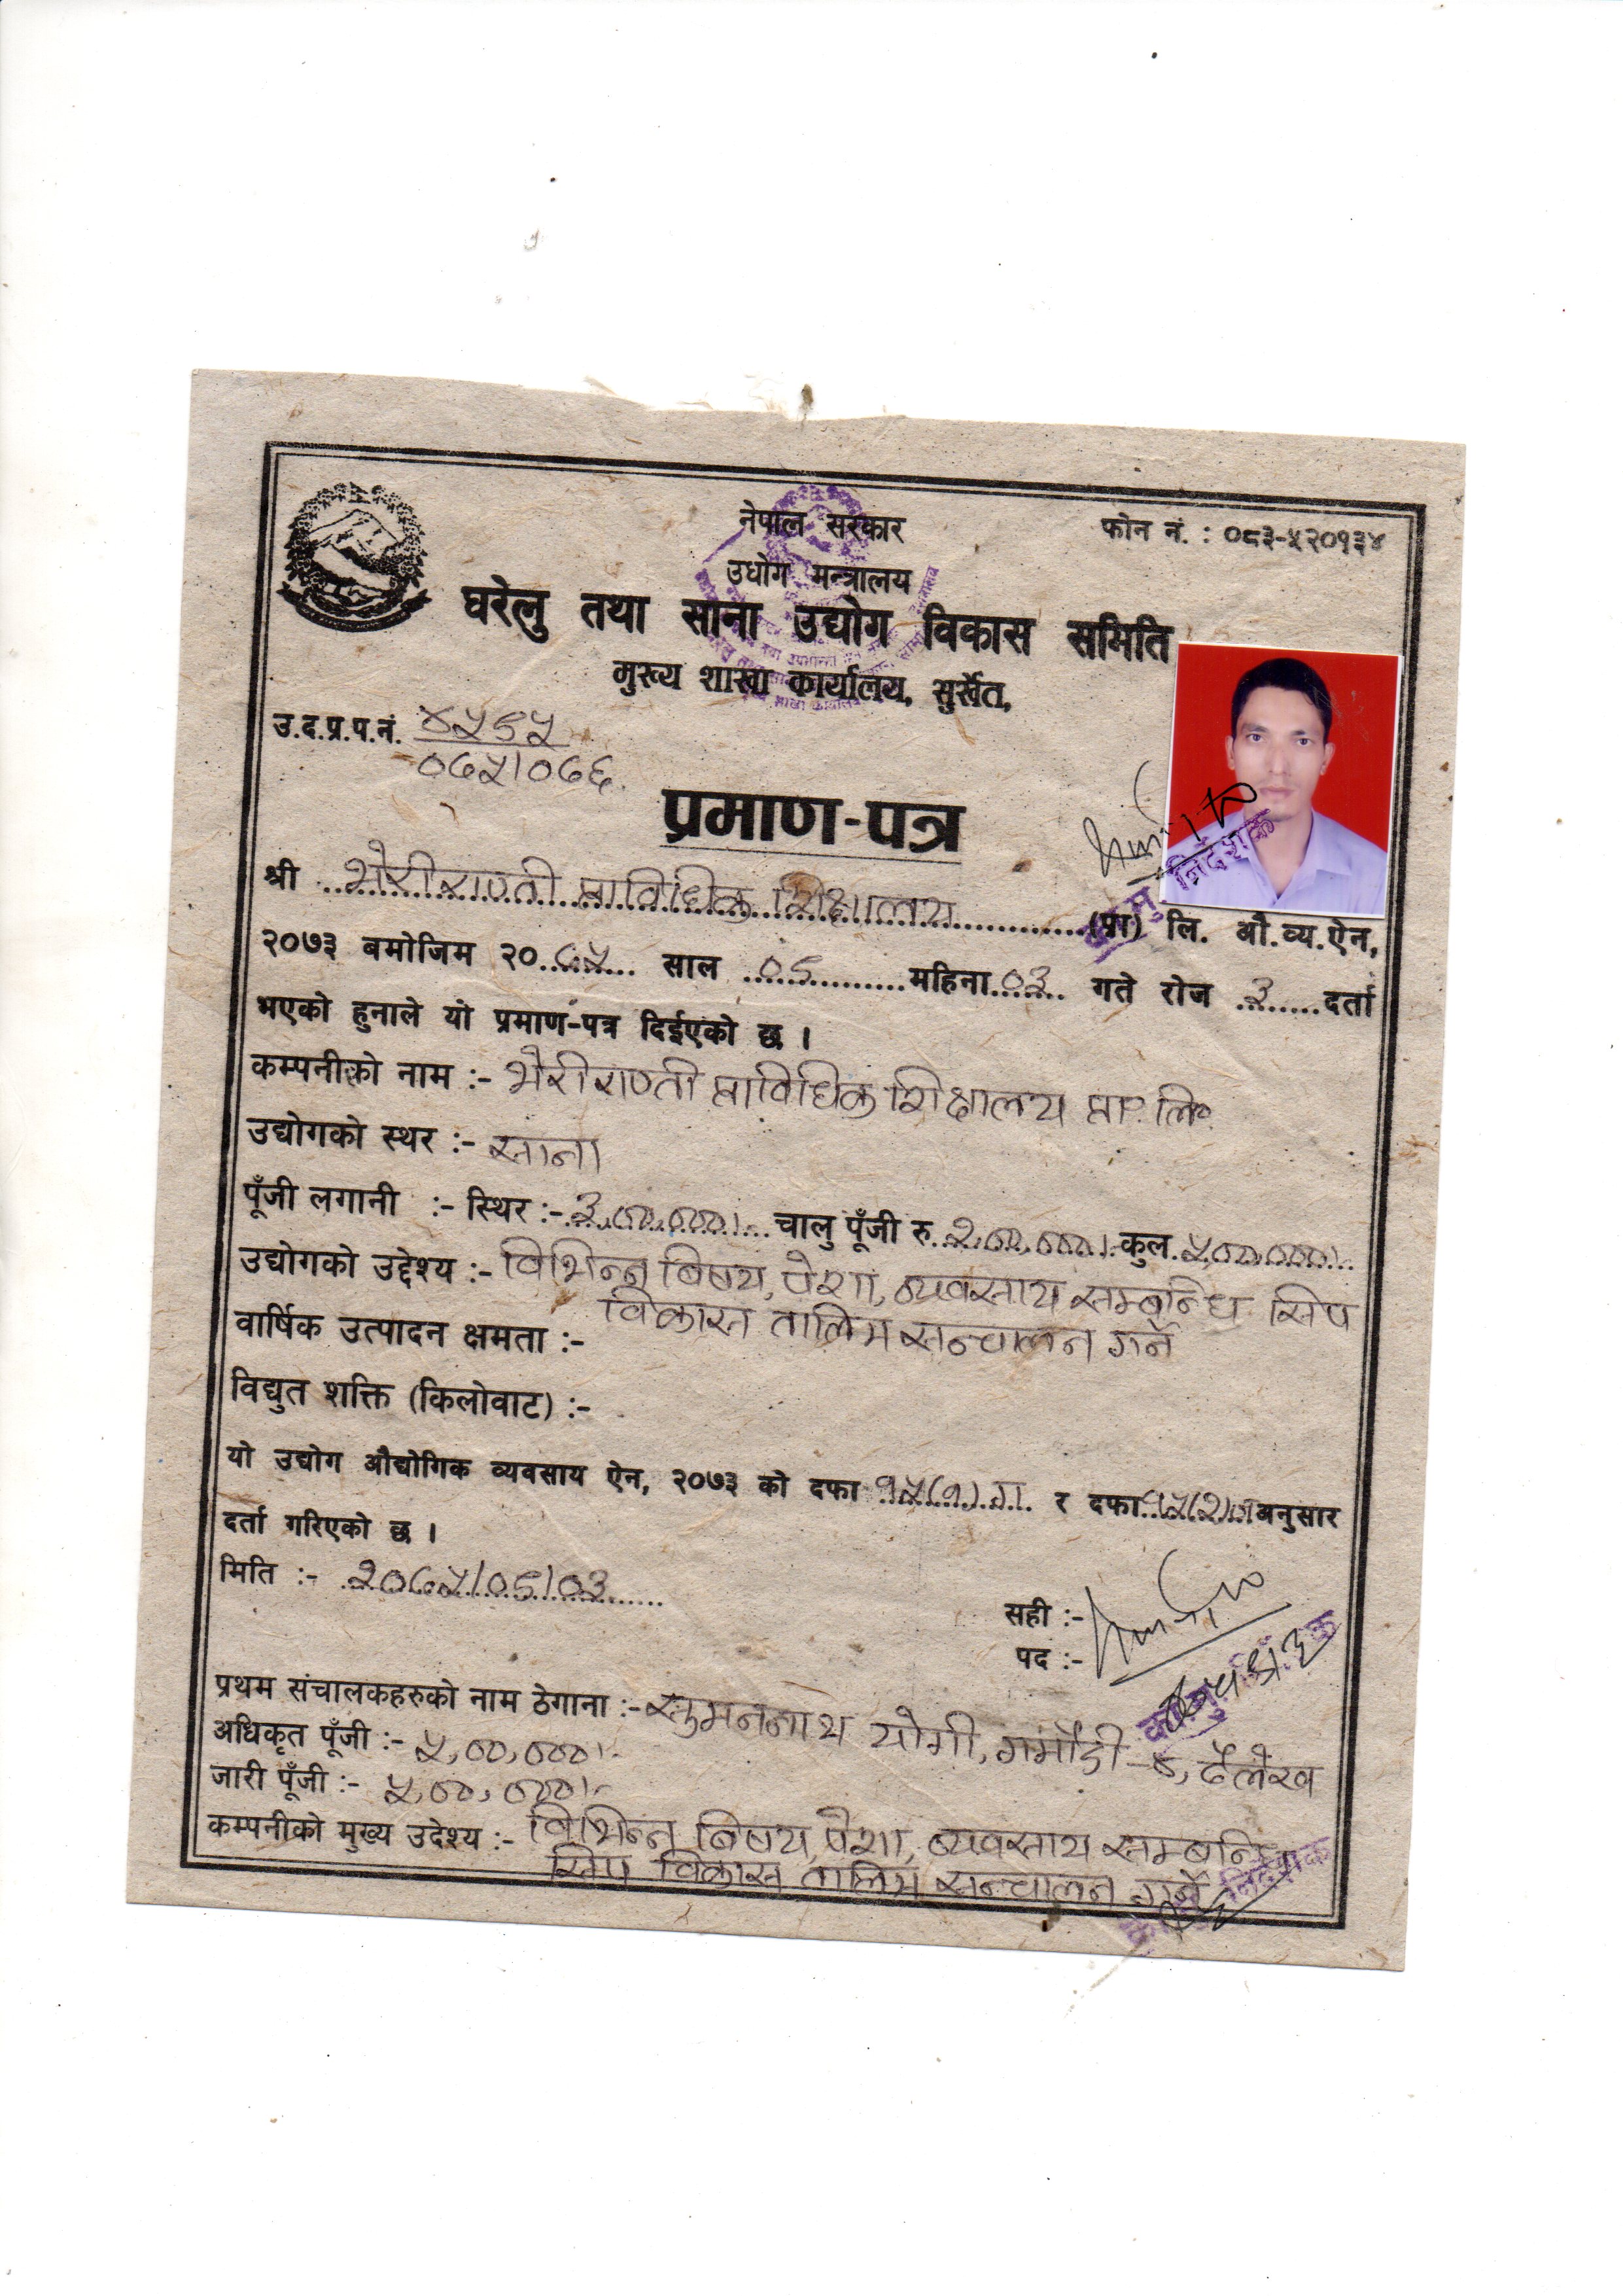 नेपाल सरकार
फोन नं. : ०८३-५२०१३४
उधोग मन्त्रालय
घरेलु तथा साना उद्योग विकास समिति
मुख्य शाखा कार्यालय, सुर्खेत,
उ.द.प्र.प.नं.
०७५।०७६
प्रमाण-पत्र
श्री भेरीराप्ती प्राविधिक शिक्षालय (प्रा) लि. औ.व्य.ऐन,
२०७३ बमोजिम २०७५ साल ०५ महिना ०३ गते रोज ३ दर्ता
भएको हुनाले यो प्रमाण-पत्र दिईएको छ ।
कम्पनीको नाम :- भेरीराप्ती प्राविधिक शिक्षालय प्रा. लि.
उद्योगको स्थर :- साना
पूँजी लगानी :- स्थिर :- ३,००,०००।- चालु पूँजी रु. २,००,०००।- कुल. ५,००,०००।-
उद्योगको उद्देश्य :- विभिन्न बिषय, पेशा, व्यवसाय सम्बन्धि सिप
विकास तालिम सन्चालन गर्ने
वार्षिक उत्पादन क्षमता :-
विद्युत शक्ति (किलोवाट) :-
यो उद्योग औद्योगिक व्यवसाय ऐन, २०७३ को दफा १५(१) ग र दफा १५(२) अनुसार
दर्ता गरिएको छ ।
मिति :- २०७५।०५।०३
सही :-
पद :-
प्रथम संचालकहरुको नाम ठेगाना :- सुमननाथ योगी, दैलेख
अधिकृत पूँजी :- ५,००,०००।-
जारी पूँजी :- ५,००,०००।-
कम्पनीको मुख्य उदेश्य :- विभिन्न बिषय, पेशा, व्यवसाय सम्बन्धि
सिप विकास तालिम सन्चालन गर्ने
निर्देशक